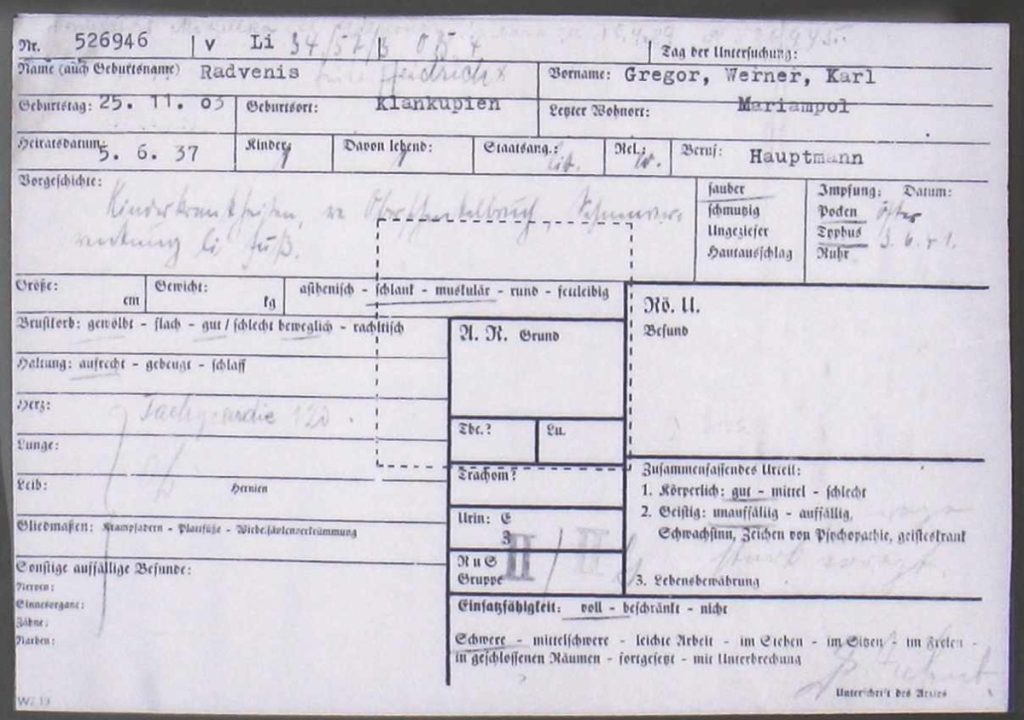 Nr. 526946 V Li 34/57/3 05 4 Tag der Untersuchung:
Name (auch Geburtsname) Radvenis Vorname: Gregor, Werner, Karl
Geburtstag: 25. 11. 03 Geburtsort: Klankupien Letzter Wohnort: Mariampol
Heiratsdatum: 5. 6. 37 Kinder: Davon lebend: Staatsang.: lit. Rel.: Beruf: Hauptmann
Vorgeschichte:
Kinderkrankheiten, re Oberschenkelbruch,
li Fuß.
sauber
schmutzig
Ungeziefer
Hautausschlag
Impfung: Datum:
Pocken öfter
Typhus 3. 6. 41.
Ruhr
Größe: cm Gewicht: kg asthenisch - schlank - muskulär - rund - fettleibig
Brustkorb: gewölbt - flach - gut / schlecht beweglich - rachitisch
Haltung: aufrecht - gebeugt - schlaff
Herz: Tachycardie 120.
Lunge:
Leib: Hernien
Gliedmaßen: Krampfadern - Plattfüße - Wirbelsäulenverkrümmung
Sonstige auffällige Befunde:
Nerven:
Sinnesorgane:
Zähne:
Narben:
W/ 13
A. R. Grund
Tbc.? Lu.
Trachom?
Urin: E
Z
RuS
Gruppe II / II
Rö. U.
Befund
Zusammenfassendes Urteil:
1. Körperlich: gut - mittel - schlecht
2. Geistig: unauffällig - auffällig,
Schwachsinn, Zeichen von Psychopathie, geisteskrank
3. Lebensbewährung
Einsatzfähigkeit: voll - beschränkt - nicht
Schwere - mittelschwere - leichte Arbeit - im Stehen - im Sitzen - im Freien -
in geschlossenen Räumen - fortgesetzt - mit Unterbrechung
Unterschrift des Arztes